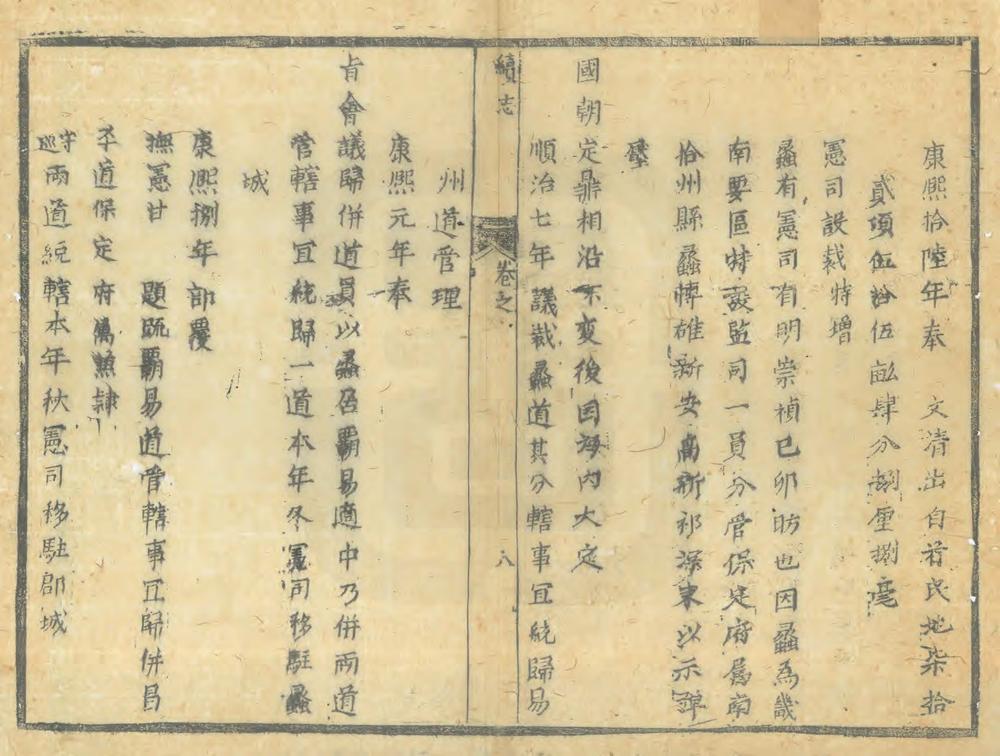 康熙拾陸年奉　文清出自首民地柒拾
貳項伍拾伍畝肆分捌厘捌毫
憲司設裁特增
蠡有憲司有明崇禎己卯昉也因蠡為畿
南要區特設監司一員分管保定府屬南
拾州縣蠡博雄新安高新祁深束以示
國朝定鼎相沿不变後因海内大定
順治七年議裁蠡道其分轄事宜統歸易
續志
卷之
八
州道管理
康熙元年奉
旨會議歸併道員以蠡居霸易適中乃併兩道
管轄事宜統歸一道本年冬憲司移駐蠡
城
康熙捌年部覆
撫憲甘　題疏霸易道管轄事宜歸併昌
平道保定府
守巡兩道統轄本年秋憲司移駐郡城